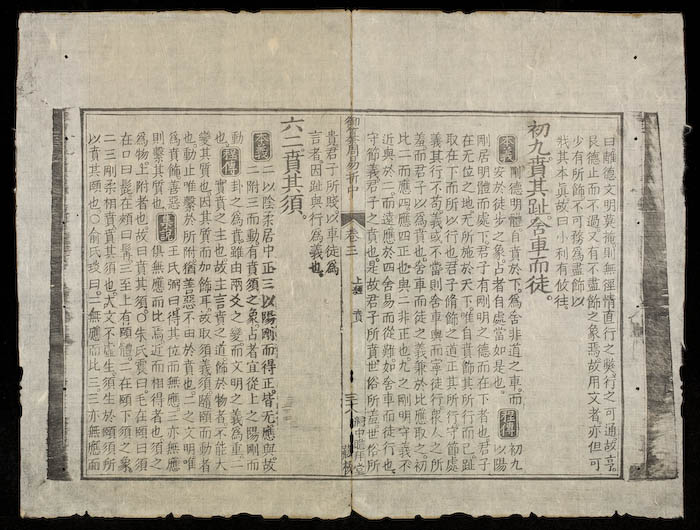 曰離德文明莫施則無徑情直行之獘行之可通故亨
艮德止而不過又有不盡飾之象焉故用文者亦但可
少有所飾不可務爲盡飾以
戕其本眞故曰小利有攸往
初九賁其趾舍車而徒
本義
剛德明體自賁於下爲舍非道之車而
安於徒步之象占者自處當如是也
程傳
初九
以陽
剛居明體而處下君子有剛明之德而在下者也君子
在无位之地无所施於天下唯自賁飾其所行而已趾
取在下而所以行也君子脩飾之道正其所行守節處
義其行不苟義或不當則舍車輿而寧徒行衆人之所
羞而君子以爲賁也舍車而徒之義兼於比應取之初
比二而應四應四正也與二非正也九之剛明守義不
近與於二而遠應於四舍易而從難如舍車而徒行也
守節義君子之賁也是故君子所賁世俗所羞世俗所
御纂周易折中 卷三 上經 賁 三十八
貴君子所賤以車徒爲
言者因趾與行爲義也
六二賁其須
本義
二以陰柔居中正三以陽剛而得正皆无應與故
二附三而動有賁須之象占者宜從上之陽剛而
動
程傳
卦之爲賁雖由兩爻之變而文明之義爲重二
實賁之主也故主言賁之道飾於物者不能大
變其質也因其質而加飾耳故取須義須隨頤而動者
也動止唯繫於所附猶善惡不由於賁也二之文明唯
爲賁飾善惡
則繫其質也
集說
王氏弼曰得其位而無應三亦無應
俱無應而比焉近而相得者也須之
爲物上附者也故曰賁其須○朱氏震曰毛在頤曰須
在口曰髭在頰曰髯三至上有頤體二在頤下須之象
二三剛柔相賁賁其須也夫文不虛生須生於頤須所
以賁其頤也○俞氏琰曰二無應而比三三亦無應而